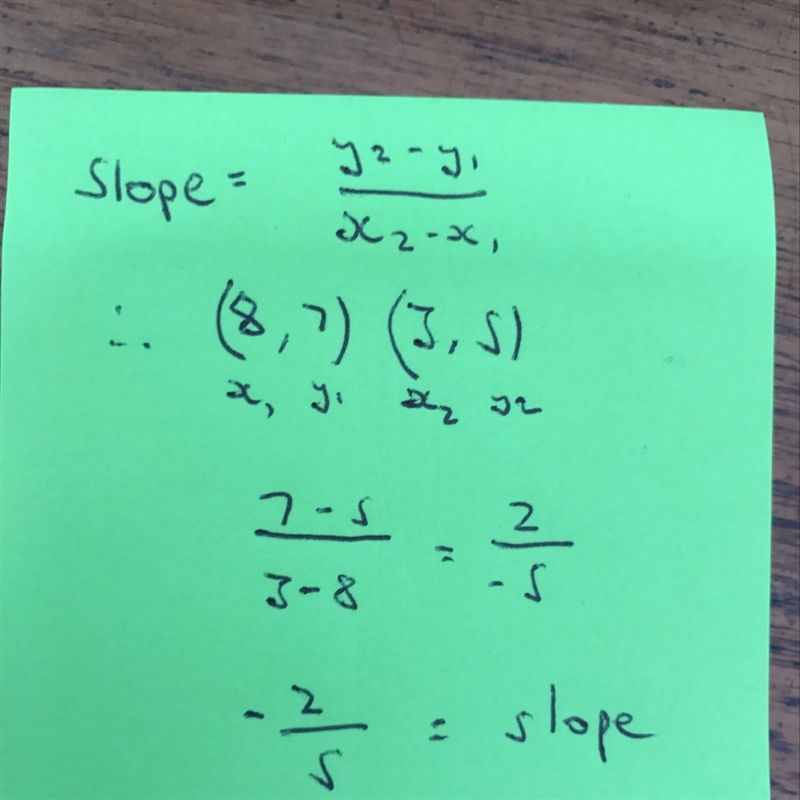 Slope = y2 - y1 / x2 - x1
∴ (8, 7) (3, 5)
x1 y1 x2 y2
7 - 5 / 3 - 8 = 2 / -5
- 2 / 5 = slope